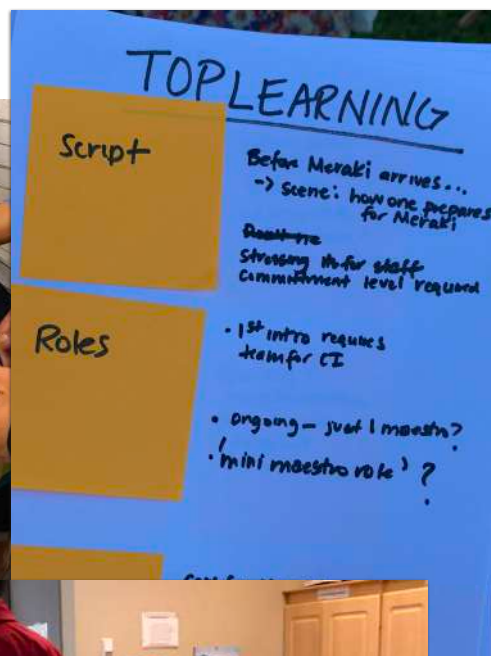 TOP LEARNING
Script
Before Meraki arrives...
-> Scene: how one prepares
for Meraki
for staff
commitment level required
Roles
• 1st intro requires
team for CI
• ongoing – just 1 maestro?
• 'mini maestro role' ?